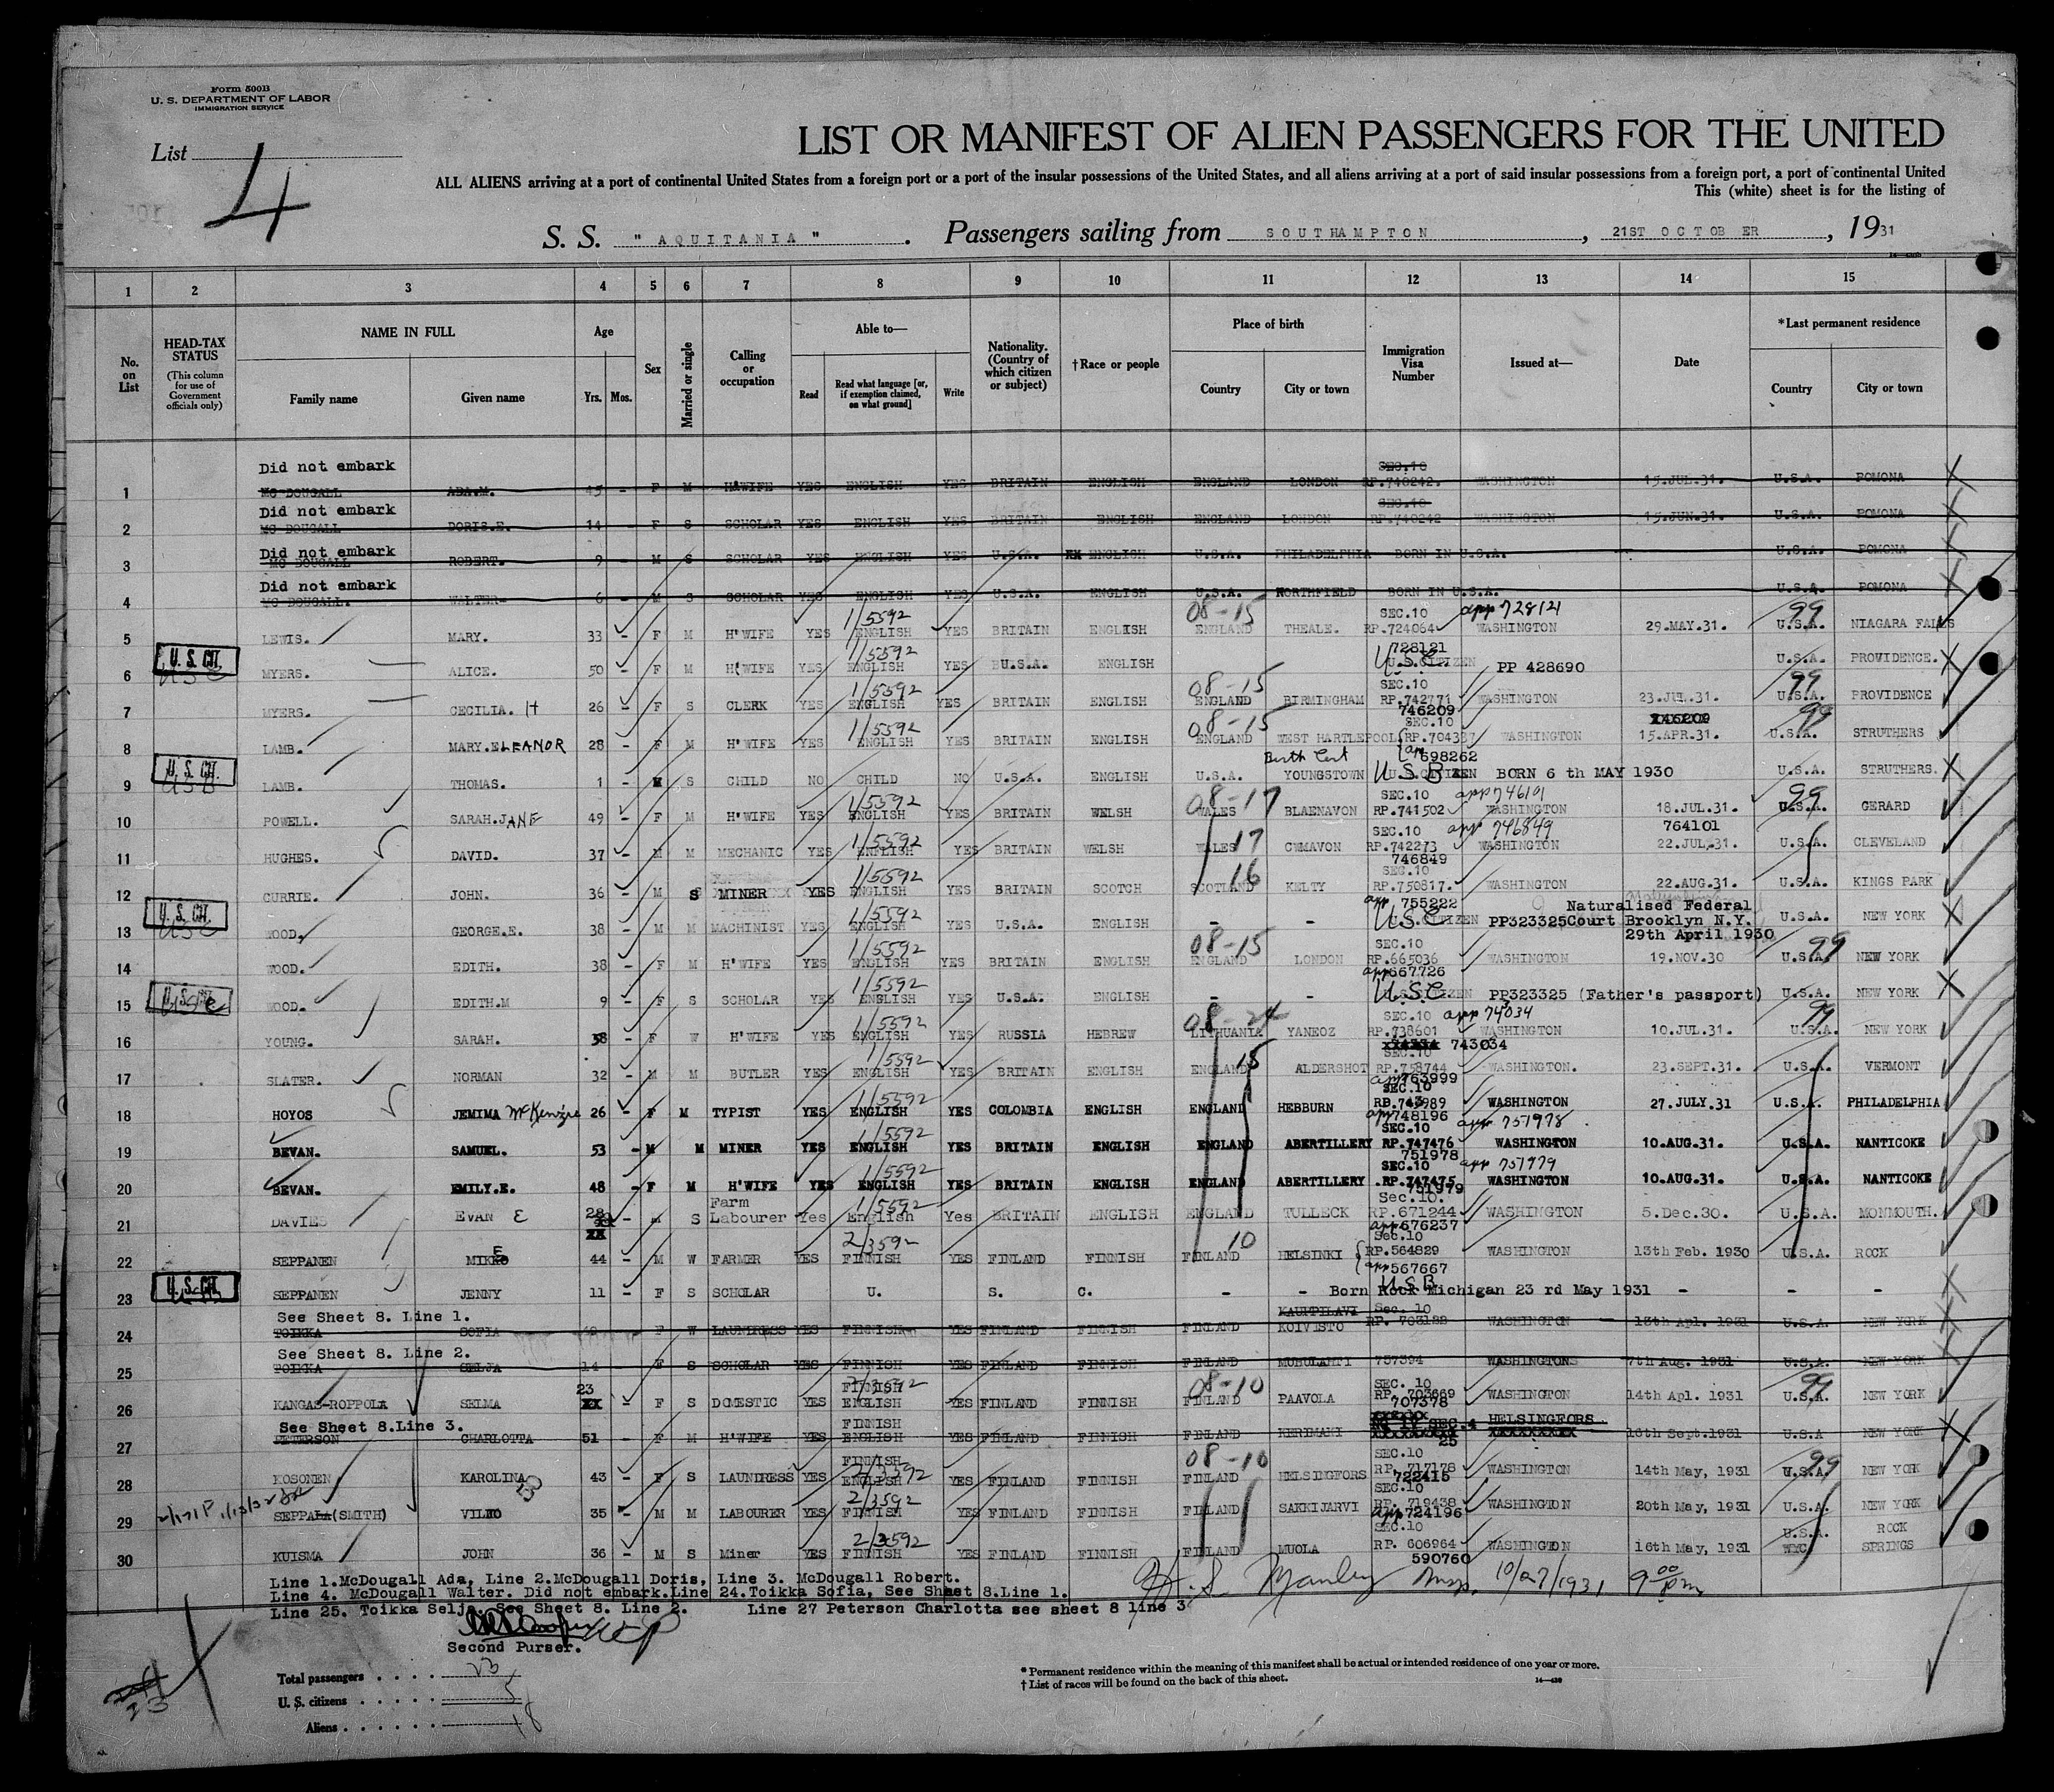 Form 500B
U. S. DEPARTMENT OF LABOR
IMMIGRATION SERVICE
List 4
LIST OR MANIFEST OF ALIEN PASSENGERS FOR THE UNITED
ALL ALIENS arriving at a port of continental United States from a foreign port or a port of the insular possessions of the United States, and all aliens arriving at a port of said insular possessions from a foreign port, a port of continental United
This (white) sheet is for the listing of
S. S. "AQUITANIA". Passengers sailing from SOUTHAMPTON, 21ST OCTOBER, 1931
1 2 3 4 5 6 7 8 9 10 11 12 13 14 15
No. on List
HEAD-TAX STATUS (This column for use of Government officials only)
NAME IN FULL Family name Given name
Age Yrs. Mos.
Sex
Married or single
Calling or occupation
Able to— Read Read what language [or, if exemption claimed, on what ground] Write
Nationality. (Country of which citizen or subject)
†Race or people
Place of birth Country City or town
Immigration Visa Number
Issued at—
Date
*Last permanent residence Country City or town
Did not embark SEC.10
1 MC DOUGALL ADA.M. 45 - F M H'WIFE YES ENGLISH YES BRITAIN ENGLISH ENGLAND LONDON RP.740242. WASHINGTON 15.JUL.31. U.S.A. POMONA
Did not embark SEC.10
2 MC DOUGALL DORIS.E. 14 - F S SCHOLAR YES ENGLISH YES BRITAIN ENGLISH ENGLAND LONDON RP.740242 WASHINGTON 15.JUN.31. U.S.A. POMONA
Did not embark
3 MC DOUGALL ROBERT. 9 - M S SCHOLAR YES ENGLISH YES U.S.A. ENGLISH U.S.A. PHILADELPHIA BORN IN U.S.A. U.S.A. POMONA
Did not embark
4 MC DOUGALL. WALTER 6 - M S SCHOLAR YES ENGLISH YES U.S.A. ENGLISH U.S.A. NORTHFIELD BORN IN U.S.A. U.S.A. POMONA
1/5592 08-15 SEC.10 app 728121 99
5 LEWIS. MARY. 33 - F M H'WIFE YES ENGLISH YES BRITAIN ENGLISH ENGLAND THEALE. RP.724064 WASHINGTON 29.MAY.31. U.S.A. NIAGARA FALLS
U. S. CIT. 1/5592 728121
6 MYERS. ALICE. 50 - F M H'WIFE YES ENGLISH YES U.S.A. ENGLISH U.S.CITIZEN PP 428690 U.S.A. PROVIDENCE.
1/5592 08-15 SEC.10 99
7 MYERS. CECILIA. H 26 - F S CLERK YES ENGLISH YES BRITAIN ENGLISH ENGLAND BIRMINGHAM RP.742771 WASHINGTON 23.JUL.31. U.S.A. PROVIDENCE
746209
1/5592 08-15 SEC.10 746209 99
8 LAMB. MARY.ELEANOR 28 - F M H'WIFE YES ENGLISH YES BRITAIN ENGLISH ENGLAND WEST HARTLEPOOL RP.704387 WASHINGTON 15.APR.31. U.S.A. STRUTHERS
U. S. CIT. Birth Cert 698262
9 LAMB. THOMAS. 1 - M S CHILD NO CHILD NO U.S.A. ENGLISH U.S.A. YOUNGSTOWN U S B BORN 6 th MAY 1930 U.S.A. STRUTHERS.
1/5592 08-17 SEC.10 app 746101 99
10 POWELL. SARAH.JANE 49 - F M H'WIFE YES ENGLISH YES BRITAIN WELSH WALES BLAENAVON RP.741502 WASHINGTON 18.JUL.31. U.S.A. GERARD
1/5592 17 SEC.10 app 746849 764101
11 HUGHES. DAVID. 37 - M M MECHANIC YES ENGLISH YES BRITAIN WELSH WALES CWMAVON RP.742273 WASHINGTON 22.JUL.31. U.S.A. CLEVELAND
746849
1/5592 16 SEC.10
12 CURRIE. JOHN. 36 - M S MINER YES ENGLISH YES BRITAIN SCOTCH SCOTLAND KELTY RP.750817. WASHINGTON 22.AUG.31. U.S.A. KINGS PARK
app 755222
U. S. CIT. 1/5592 Naturalised Federal
13 WOOD. GEORGE.E. 38 - M M MACHINIST YES ENGLISH YES U.S.A. ENGLISH - - U.S.CITIZEN PP323325 Court Brooklyn N.Y. U.S.A. NEW YORK
29th April 1930
1/5592 08-15 SEC.10 99
14 WOOD. EDITH. 38 - F M H'WIFE YES ENGLISH YES BRITAIN ENGLISH ENGLAND LONDON RP.665036 WASHINGTON 19.NOV.30 U.S.A. NEW YORK
app 667726
1/5592
15 WOOD. EDITH.M 9 - F S SCHOLAR YES ENGLISH YES U.S.A. ENGLISH - - U.S.CITIZEN PP323325 (Father's passport) U.S.A. NEW YORK
1/5592 08-24 SEC.10 app 74034 99
16 YOUNG. SARAH. 58 - F W H'WIFE YES ENGLISH YES RUSSIA HEBREW LITHUANIA YANEOZ RP.738601 WASHINGTON 10.JUL.31. U.S.A. NEW YORK
743034
1/5592 15 SEC.10
17 SLATER. NORMAN 32 - M M BUTLER YES ENGLISH YES BRITAIN ENGLISH ENGLAND ALDERSHOT RP.758744 WASHINGTON. 23.SEPT.31. U.S.A. VERMONT
app 763999
1/5592 SEC.10
18 HOYOS JEMIMA McKenzie 26 - F M TYPIST YES ENGLISH YES COLOMBIA ENGLISH ENGLAND HEBBURN RP.743989 WASHINGTON 27.JULY.31 U.S.A. PHILADELPHIA
app 748196
1/5592 SEC.10 app 751978
19 BEVAN. SAMUEL. 53 - M M MINER YES ENGLISH YES BRITAIN ENGLISH ENGLAND ABERTILLERY RP.747476 WASHINGTON 10.AUG.31. U.S.A. NANTICOKE
751978
1/5592 SEC.10 app 751979
20 BEVAN. EMILY.E. 48 - F M H'WIFE YES ENGLISH YES BRITAIN ENGLISH ENGLAND ABERTILLERY RP.747475 WASHINGTON 10.AUG.31. U.S.A. NANTICOKE
751979
28 Farm 1/5592 Sec.10.
21 DAVIES EVAN E - M S Labourer Yes English Yes BRITAIN ENGLISH ENGLAND TULLECK RP.671244 WASHINGTON 5.Dec.30. U.S.A. MONMOUTH.
app 676237
2/3592 10 Sec.10
22 SEPPANEN MIKE 44 - M W FARMER YES FINNISH YES FINLAND FINNISH FINLAND HELSINKI RP.564829 WASHINGTON 13th Feb. 1930 U.S.A. ROCK
app 567667
U. S. CIT. U.S.B
23 SEPPANEN JENNY 11 - F S SCHOLAR U. S. C. - - Born Rock Michigan 23 rd May 1931 - - -
See Sheet 8. Line 1. Sec. 10
24 TOIKKA SOFIA F W LAUNDRESS YES FINNISH YES FINLAND FINNISH FINLAND KOIVISTO RP. WASHINGTON - 13th Apl. 1931 U.S.A. NEW YORK
See Sheet 8. Line 2.
25 TOIKKA SELJA 14 - F S SCHOLAR YES FINNISH YES FINLAND FINNISH FINLAND 757394 WASHINGTON 7th Aug. 1931 U.S.A. NEW YORK
23 FINNISH 2/3592 08-10 SEC. 10 99
26 KANGAS-ROPPOLA SELMA XX - F S DOMESTIC YES ENGLISH YES FINLAND FINNISH FINLAND PAAVOLA RP. 703669 WASHINGTON 14th Apl. 1931 U.S.A. NEW YORK
707378
See Sheet 8.Line 3. FINNISH SEC.4 HELSINGFORS
27 PETERSON CHARLOTTA 51 - F M H'WIFE YES ENGLISH YES FINLAND FINNISH FINLAND KERIMAKI XXXXXXXXX 16th Sept.1931 U.S.A NEW YORK
25
FINNISH 2/3592 08-10 SEC.10 99
28 KOSONEN KAROLINA 43 - F S LAUNDRESS YES ENGLISH YES FINLAND FINNISH FINLAND HELSINGFORS RP. 717178 WASHINGTON 14th May, 1931 U.S.A. NEW YORK
722415
2/3592 SEC.10
29 SEPPALA (SMITH) VILHO 35 - M M LABOURER YES FINNISH YES FINLAND FINNISH FINLAND SAKKIJARVI RP. 719438 WASHINGTON 20th May, 1931 U.S.A. NEW YORK
app 724196
2/3592 SEC.10 U.S.A. ROCK
30 KUISMA JOHN 36 - M S Miner YES FINNISH YES FINLAND FINNISH FINLAND MUOLA RP. 606964 WASHINGTON 16th May, 1931 WYO SPRINGS
590760
Line 1.McDougall Ada, Line 2.McDougall Doris, Line 3. McDougall Robert.
Line 4. McDougall Walter. Did not embark.Line 24.Toikka Sofia, See Sheet 8.Line 1.
Line 25. Toikka Selja. See Sheet 8. Line 2. Line 27 Peterson Charlotta see sheet 8 line 3
H. S. Manley Insp. 10/27/1931 9 00 pm
Second Purser.
Total passengers 23
U. S. citizens 5
Aliens 18
23
* Permanent residence within the meaning of this manifest shall be actual or intended residence of one year or more.
† List of races will be found on the back of this sheet.